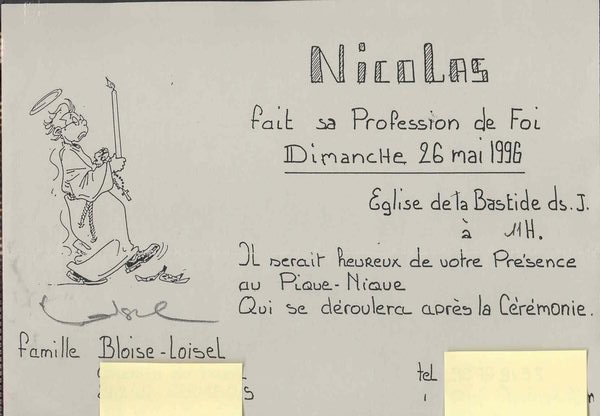 Nicolas
fait sa Profession de Foi
Dimanche 26 mai 1996
Eglise de la Bastide ds. J.
à 11H.
Il serait heureux de votre Présence
au Pique-Nique
Qui se déroulera après la Cérémonie.
Loisel
famille Bloise-Loisel
tel